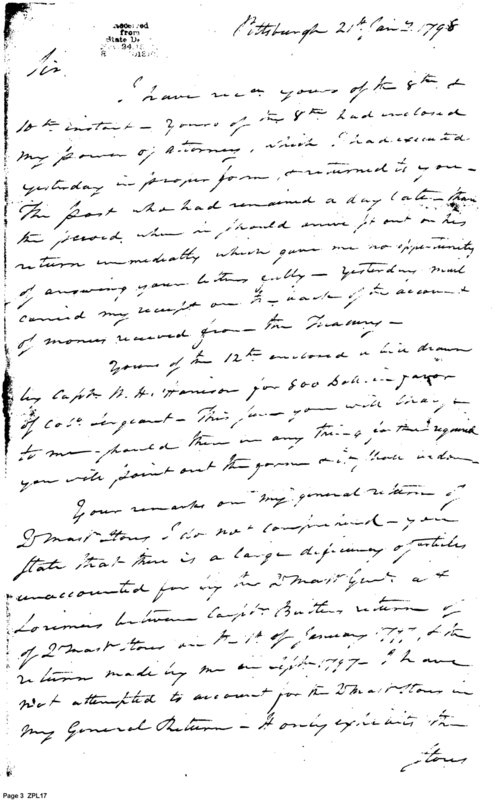 Received
from
State D
Nov. 24, 19
Pittsburgh 21st Jany. 1798
Sir
I have recd. yours of the 8th. &
10th instant – Yours of the 8th had enclosed
my power of attorney, which I had executed
yesterday in proper form, & returned to you –
The post who had remained a day later than
the period when it should arrive set out on his
return immediately which gave me no opportunity
of answering your letters fully – Yesterdays mail
carried my receipt on the back of the account
of monies received from the Treasury –
Yours of the 12th enclosed a bill drawn
by Capt. W. H. Harrison for 800 Doll. in favor
of Colo. Sergeant – This sum you will charge
to me – should there be any thing further required
you will point out the form & it shall be done –
Your remarks on my general return of
Qr Mast. Stores I do not comprehend – you
state that there is a large deficiency of articles
unaccounted for by the Qr Mast. Genl. at
Lorimers between Capt. Butlers return of
of Qr Mast. Stores on the 1st of January 1797, & the
return made by me in Sept. 1797 – I have
not attempted to account for the Qr Mast. Stores in
my General Return – It only exhibits the
Stores
Page 3 ZPL17